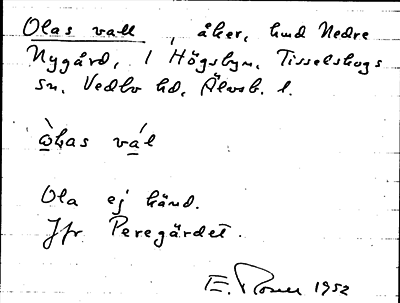 Olas vall, åker, hmd Nedre
Nygård, 1 Högsbyn, Tisselskogs
sn, Vedbo hd, Älvsb. l.
ò̱has vá̱l
Ola ej känd.
Jfr Peregärdet.
E. 1952